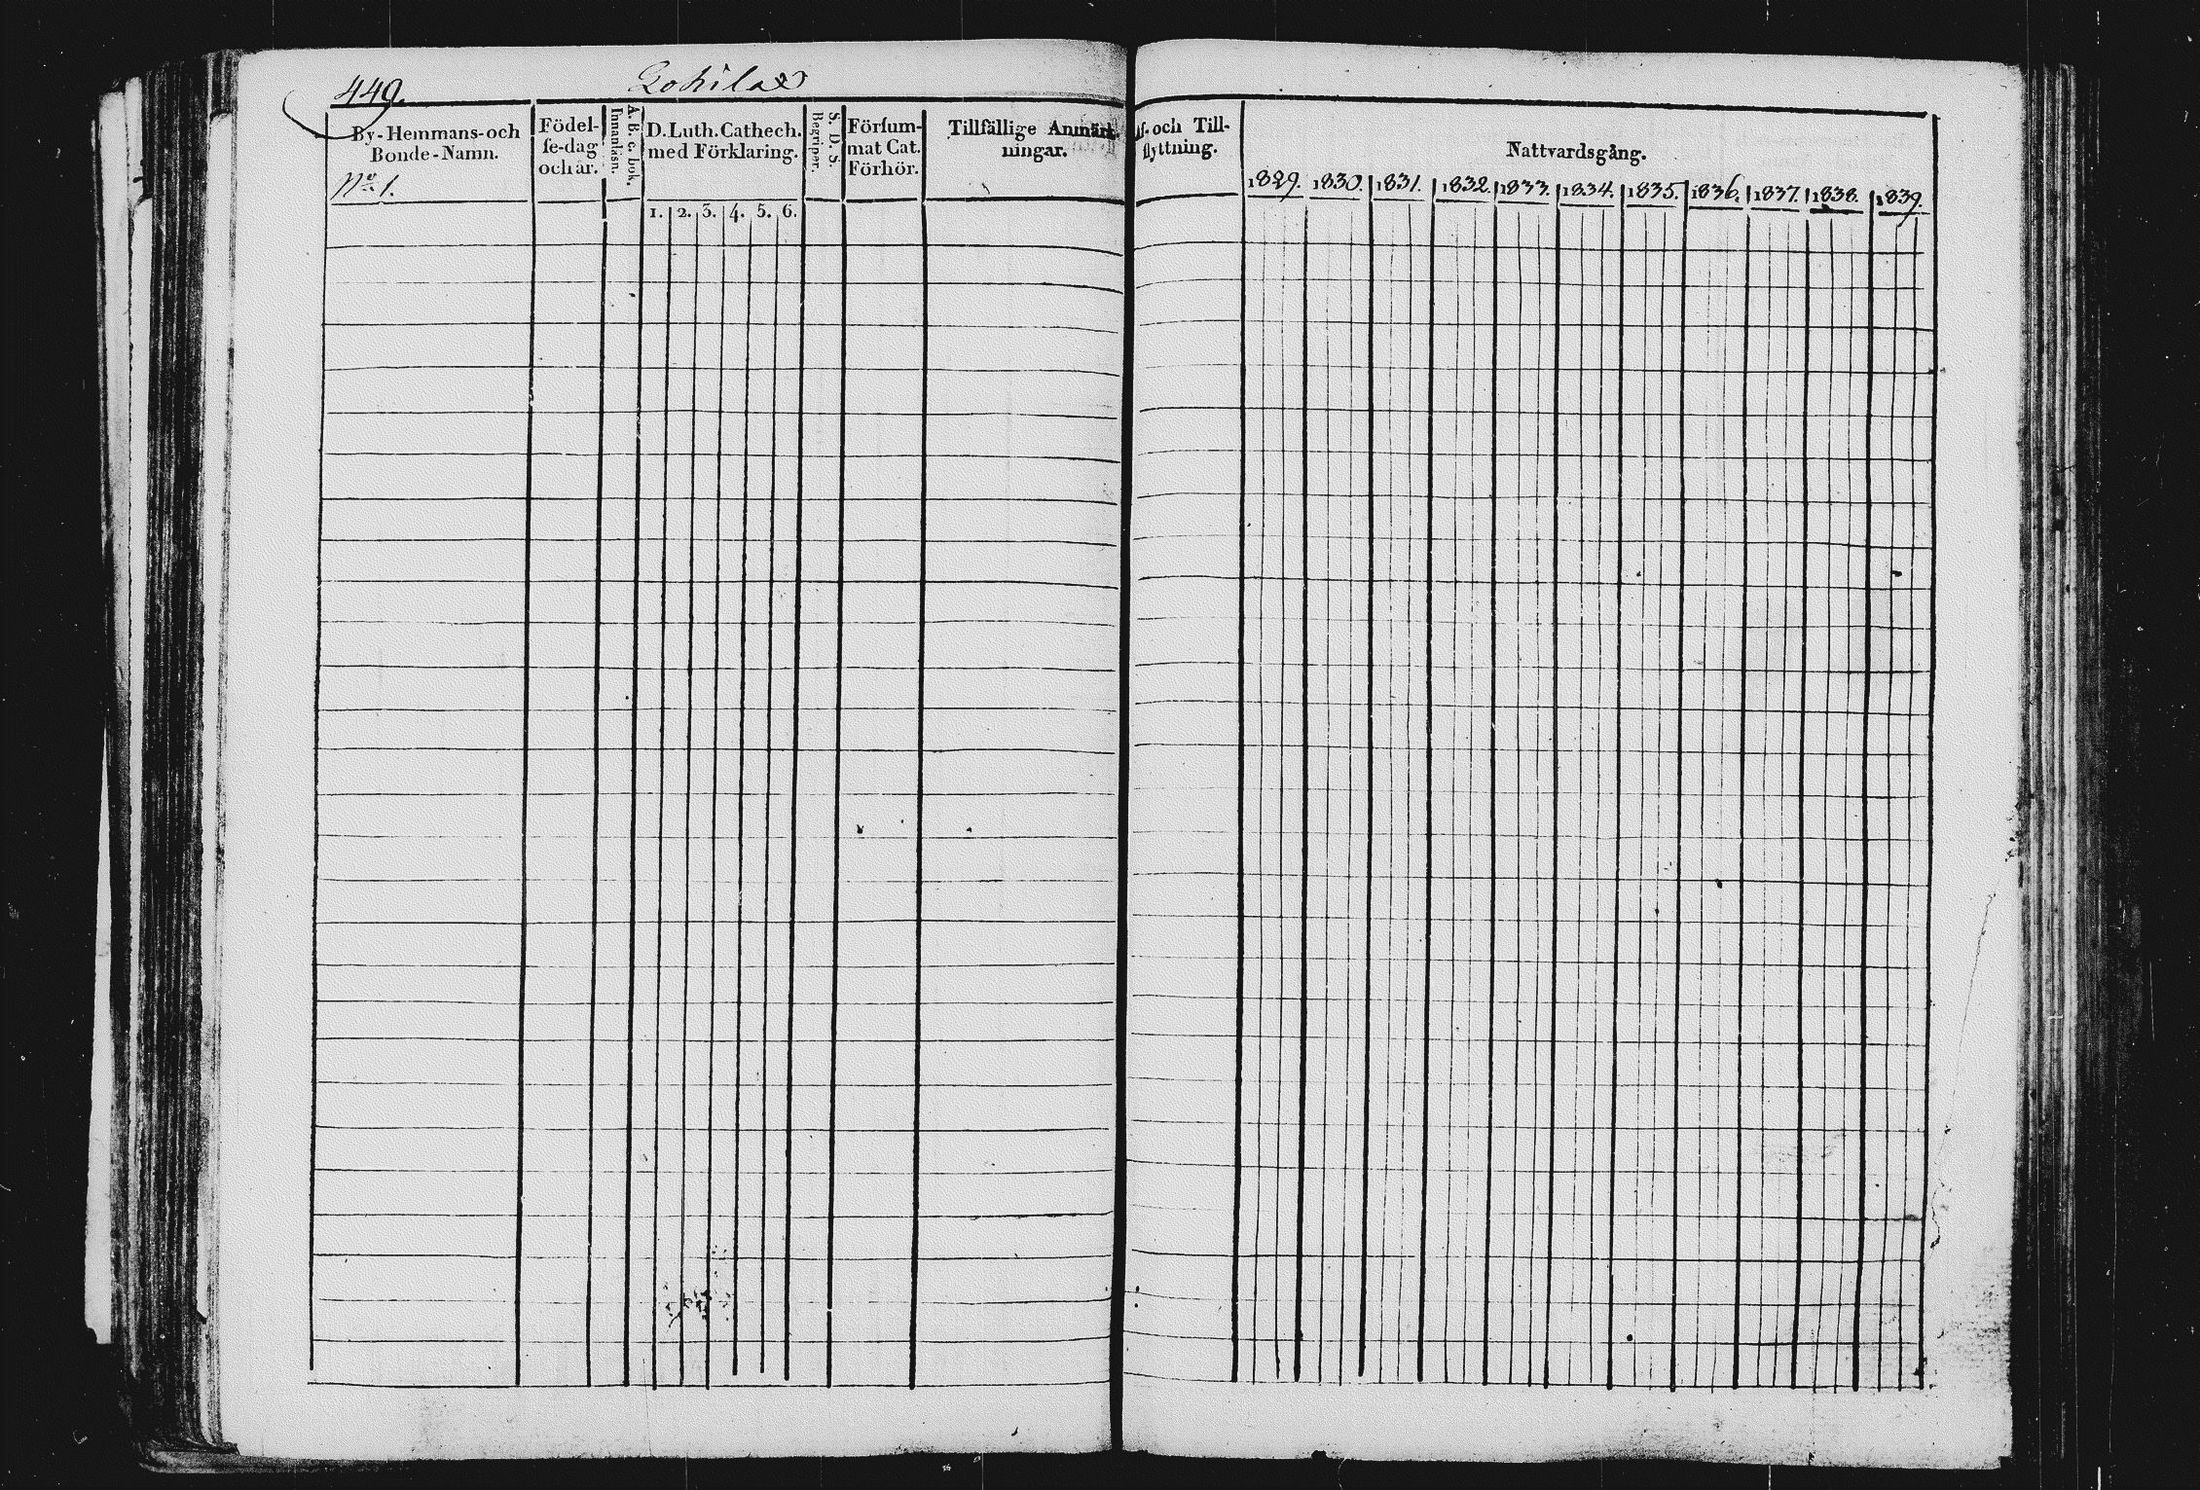 449.
Lohilax
By-Hemmans-och
Bonde-Namn.
No 1.
Födel-
se-dag
och år.
A. B. c. bok.
Innanläsn.
D. Luth. Cathech.
med Förklaring.
1. 2. 3. 4. 5. 6.
S. D. S.
Begriper.
Försum-
mat Cat.
Förhör.
Tillfällige Anmärk-
ningar.
f- och Till-
flyttning.
Nattvardsgång.
1829. 1830. 1831. 1832. 1833. 1834. 1835. 1836. 1837. 1838. 1839.